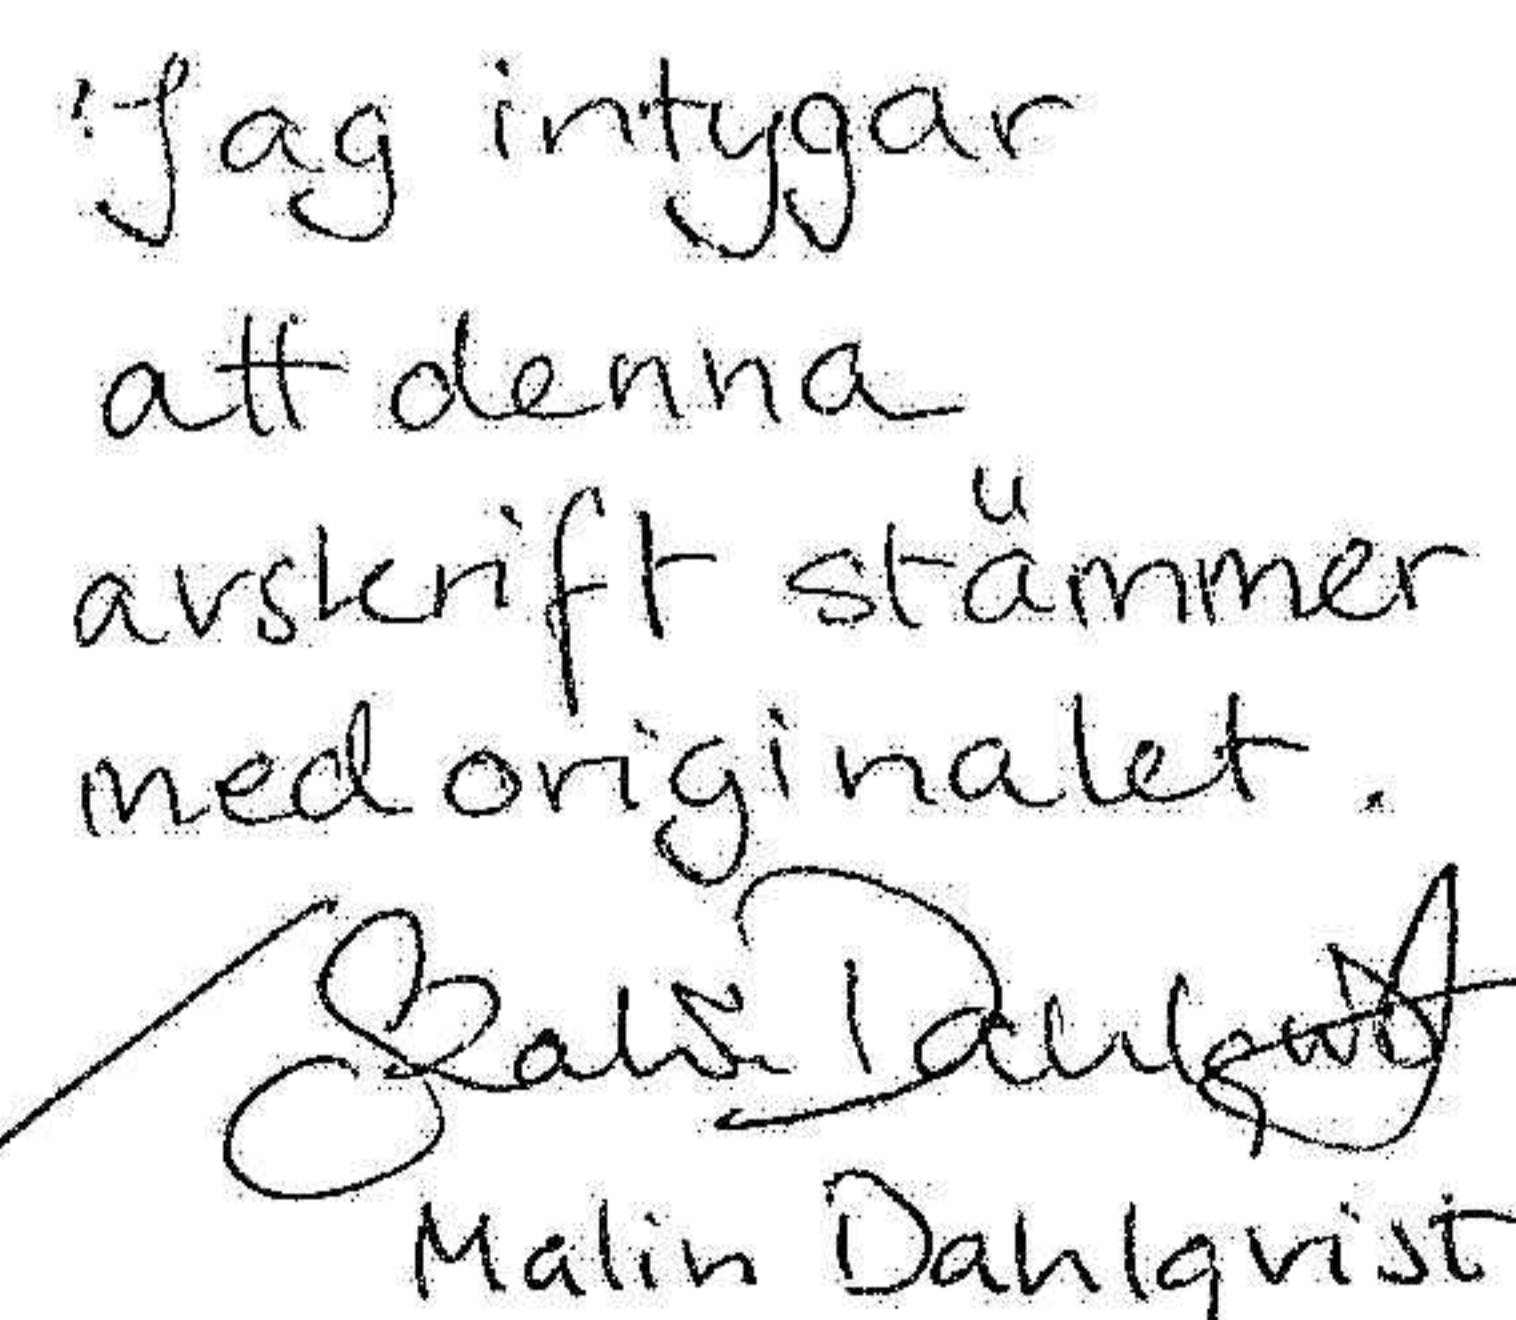 Jag intygar
att denna
avskrift stämmer
med originalet.
Malin Dahlqvist
Malin Dahlqvist